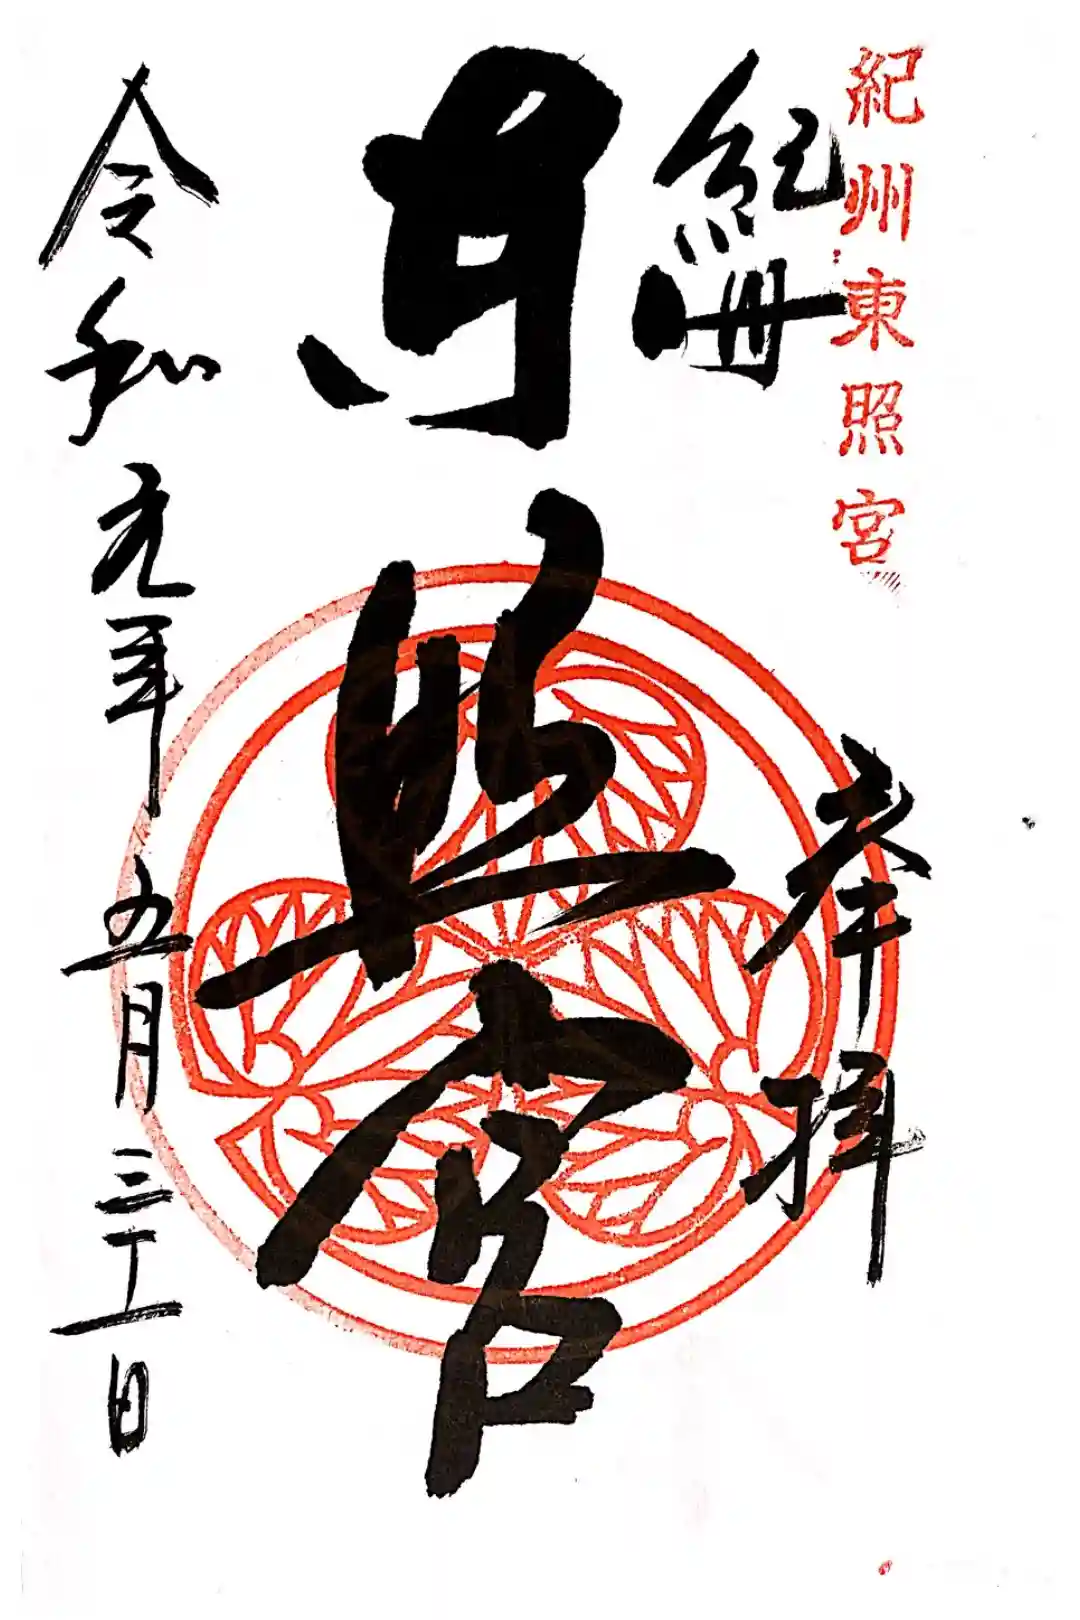 紀州東照宮
紀州
奉拝
東照宮
令和元年五月三十一日